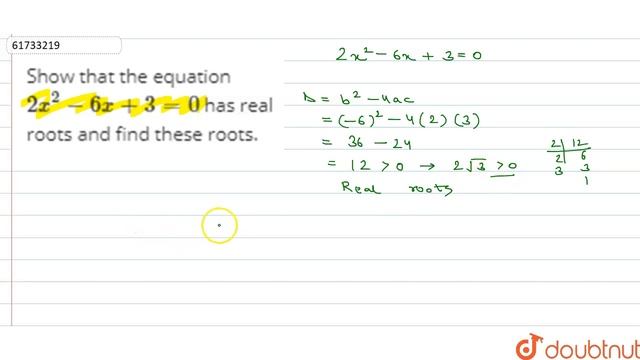 61733219
Show that the equation
2x² − 6x + 3 = 0 has real
roots and find these roots.
2x² − 6x + 3 = 0
D = b² − 4ac
= (−6)² − 4(2)(3)
= 36 − 24
= 12 > 0 → 2√3 > 0
Real roots
2 | 12
2 | 6
3 3
1
doubtnut